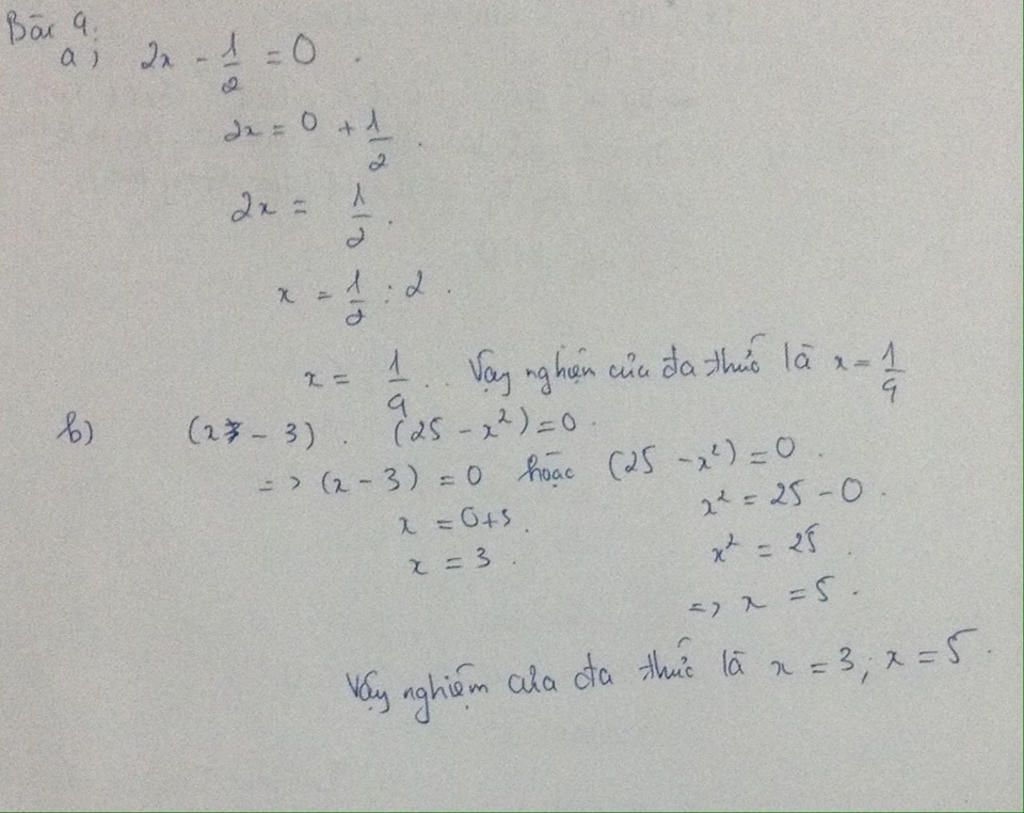 Bài 4:
a) 2x - 1/2 = 0.
2x = 0 + 1/2.
2x = 1/2.
x = 1/2 : 2.
x = 1/4.. Vậy nghiệm của đa thức là x = 1/4
b) (x - 3). (25 - x²) = 0.
=> (x - 3) = 0 hoặc (25 - x²) = 0.
x = 0+3. x² = 25 - 0.
x = 3. x² = 25.
=> x = 5.
Vậy nghiệm của đa thức là x = 3; x = 5.